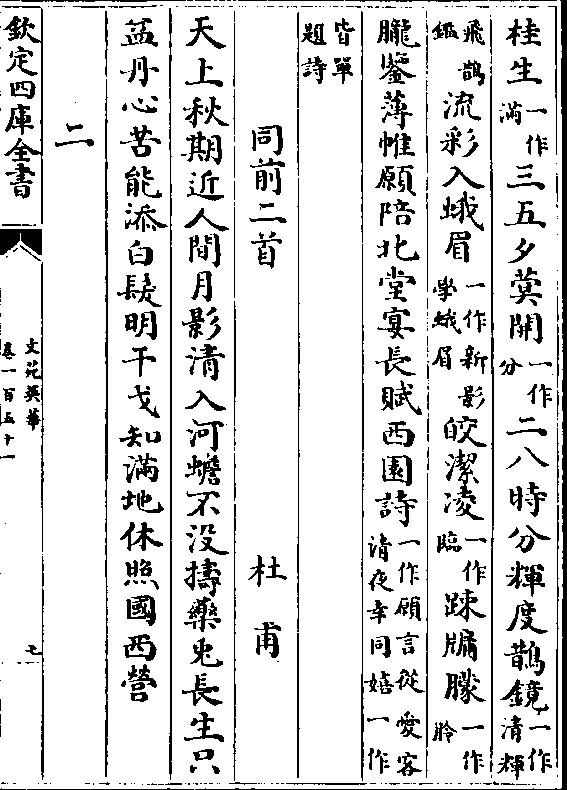 桂生一作滿三五夕蓂開一作分二八時分輝度鵲鏡一作清輝
飛鵲鑑流彩入蛾眉一作新影學蛾眉皎潔凌一作臨踈牖朦一作朎
朧鑒薄帷願陪北堂宴長賦西園詩一作願言從愛客清夜幸同嬉一作
皆單題詩
同前二首 杜甫
天上秋期近人間月影清入河蟾不没擣藥兎長生只
益丹心苦能添白髮明干戈知滿地休照國西營
二
欽定四庫全書
文苑英華
卷一百五十一
七